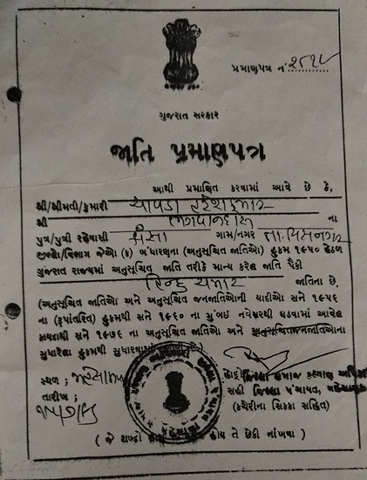 પ્રમાણપત્ર નં.
ગુજરાત સરકાર
જાતિ પ્રમાણપત્ર
આથી પ્રમાણિત કરવામાં આવે છે કે,
શ્રી/શ્રીમતી/કુમારી ચાવડા
શ્રી ભગવાનદાસ ના
પુત્ર/પુત્રી રહેવાસી ગામ/નગર તા. વિસનગર
જીલ્લો/વિભાગ જેઓ (૬) બંધારણના (અનુસૂચિત જાતિઓ) હુકમ ૧૯૫૦ હેઠળ
ગુજરાત રાજ્યમાં અનુસૂચિત જાતિ તરીકે માન્ય કરેલ જાતિ પૈકી
હિન્દુ ચમાર જાતિના છે.
(અનુસૂચિત જાતિઓ અને અનુસૂચિત જનજાતિઓની યાદીઓ સને ૧૯૫૬
ના (રૂપાંતરિત) હુકમથી સને ૧૯૬૦ ના મુંબઇ નવેસરથી ઘડવામાં આવેલ
કાયદાથી સને ૧૯૭૬ ના અનુસૂચિત જાતિઓ અને અનુસૂચિતજનજાતિઓના
સુધારેલા હુકમથી સુધારવામાં
સ્થળ : મહેસાણા
તારીખ :
સહી જિલ્લા પંચાયત, મહેસાણા
(કચેરીના સિક્કા સહિત)
(જે શબ્દો હોય તે છેકી નાંખવા)